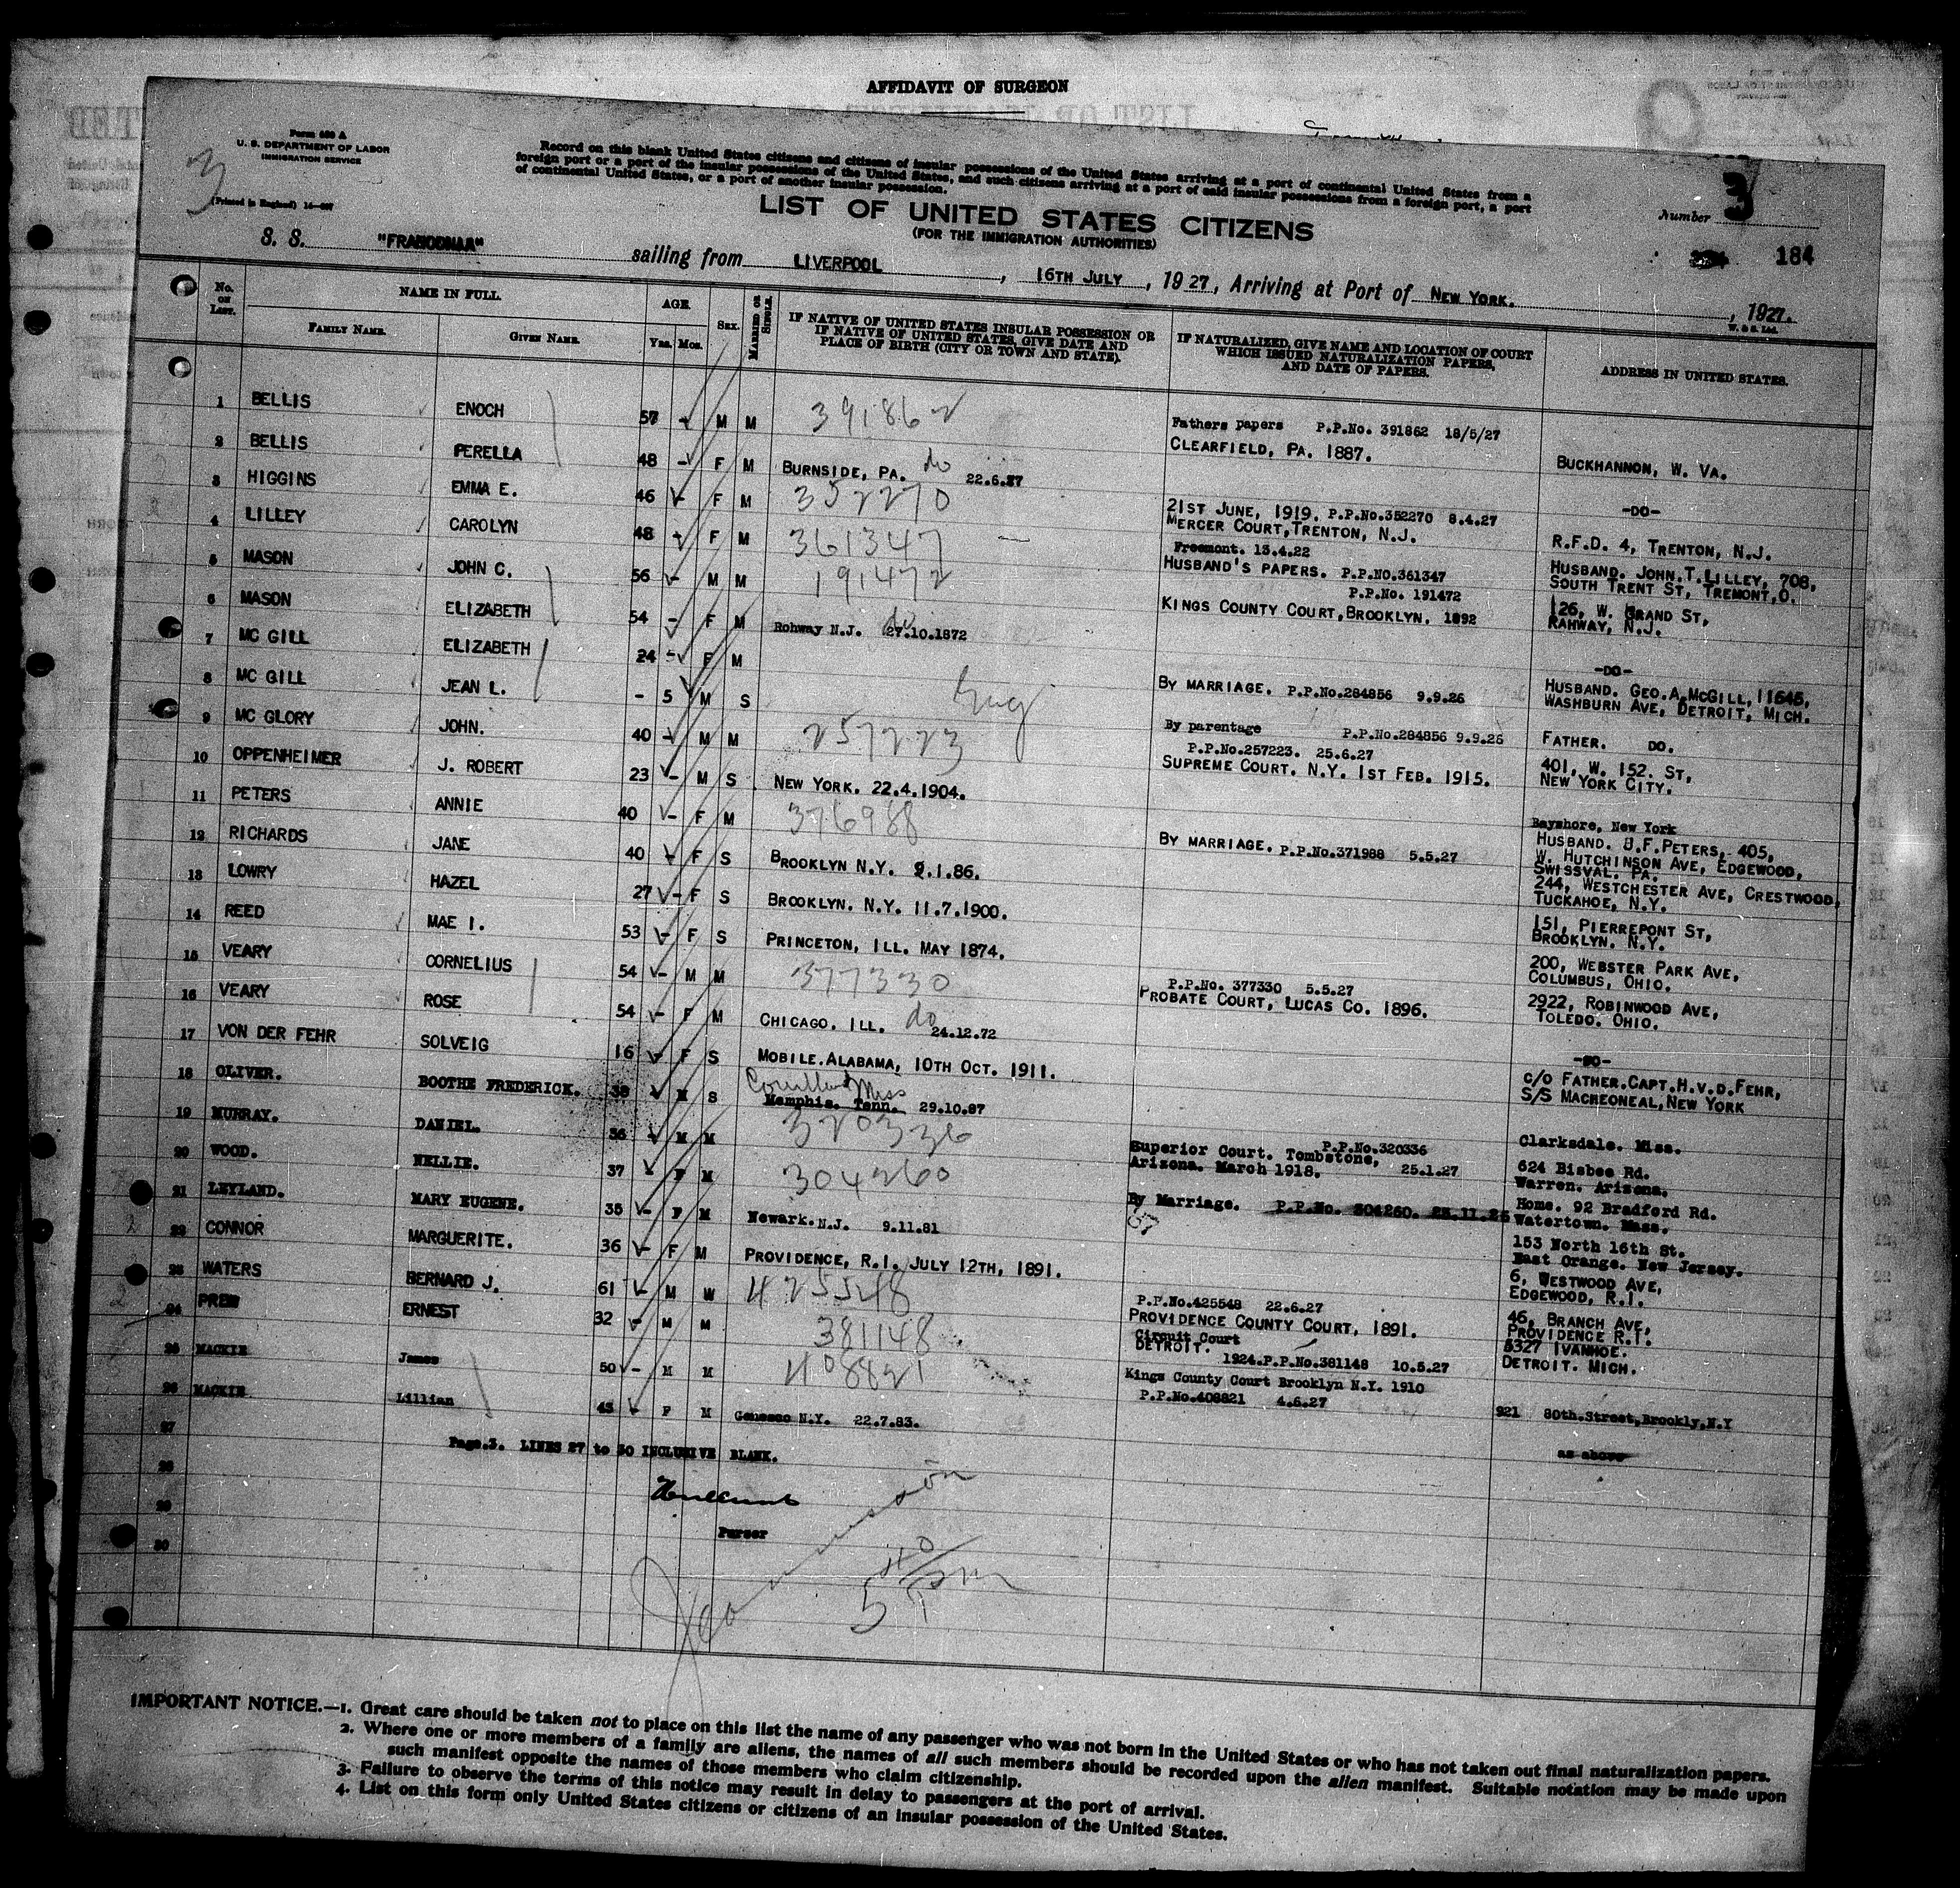 AFFIDAVIT OF SURGEON
Form 630 A
U. S. DEPARTMENT OF LABOR
IMMIGRATION SERVICE
3
(Printed in England) 14—207
Record on this blank United States citizens and citizens of insular possessions of the United States arriving at a port of continental United States from a
foreign port or a port of the insular possessions of the United States, and such citizens arriving at a port of said insular possessions from a foreign port, a port
of continental United States, or a port of another insular possession.
Number 3
LIST OF UNITED STATES CITIZENS
(FOR THE IMMIGRATION AUTHORITIES)
184
S. S. sailing from LIVERPOOL, 16TH JULY, 1927, Arriving at Port of NEW YORK., 1927.
W. & S. Ltd.
No. ON LIST. NAME IN FULL. AGE. SEX. MARRIED OR SINGLE. IF NATIVE OF UNITED STATES INSULAR POSSESSION OR IF NATIVE OF UNITED STATES, GIVE DATE AND PLACE OF BIRTH (CITY OR TOWN AND STATE). IF NATURALIZED, GIVE NAME AND LOCATION OF COURT WHICH ISSUED NATURALIZATION PAPERS, AND DATE OF PAPERS. ADDRESS IN UNITED STATES.
FAMILY NAME. GIVEN NAME. Yrs. Mos.
1 BELLIS ENOCH 57 - M M 391862 Fathers papers P.P.No. 391862 18/5/27 CLEARFIELD, PA. 1887. BUCKHANNON, W. VA.
2 BELLIS PERELLA 48 - F M BURNSIDE, PA. do 22.6. -DO-
3 HIGGINS EMMA E. 46 - F M 352270 21ST JUNE, 1919. P.P.No.352270 8.4.27 MERCER COURT, TRENTON, N.J. R.F.D. 4, TRENTON, N.J.
4 LILLEY CAROLYN 48 - F M 361347 Freemont. 13.4.22 HUSBAND'S PAPERS. P.P.NO.361347 HUSBAND. JOHN.T.LILLEY, 708, SOUTH TRENT ST, TREMONT,O.
5 MASON JOHN C. 56 - M M 191472 P.P.No. 191472 KINGS COUNTY COURT, BROOKLYN. 1892 126, W. GRAND ST, RAHWAY, N.J.
6 MASON ELIZABETH 54 - F M Rohway N.J. do 27.10.1872 -DO-
7 MC GILL ELIZABETH 24 - F M BY MARRIAGE. P.P.No.284856 9.9.26 HUSBAND. GEO.A.McGILL, 11645, WASHBURN AVE, DETROIT, MICH.
8 MC GILL JEAN L. - 5 M S Eng By parentage P.P.No.284856 9.9.26 FATHER. DO.
9 MC GLORY JOHN. 40 - M M 257223 P.P.No.257223. 25.6.27 SUPREME COURT. N.Y. 1ST FEB. 1915. 401, W. 152. ST, NEW YORK CITY.
10 OPPENHEIMER J. ROBERT 23 - M S NEW YORK. 22.4.1904. Bayshore, New York
11 PETERS ANNIE 40 - F M 376988 BY MARRIAGE. P.P.No.371988 5.5.27 HUSBAND. J.F.PETERS, 405, W. HUTCHINSON AVE, EDGEWOOD, SWISSVAL. PA.
12 RICHARDS JANE 40 - F S BROOKLYN N.Y. 2.1.86. 244, WESTCHESTER AVE, CRESTWOOD, TUCKAHOE, N.Y.
13 LOWRY HAZEL 27 - F S BROOKLYN. N.Y. 11.7.1900. 151, PIERREPONT ST, BROOKLYN. N.Y.
14 REED MAE I. 53 - F S PRINCETON, ILL. MAY 1874. 200, WEBSTER PARK AVE, COLUMBUS, OHIO.
15 VEARY CORNELIUS 54 - M M 377330 P.P.No. 377330 5.5.27 PROBATE COURT, LUCAS CO. 1896. 2922, ROBINWOOD AVE, TOLEDO. OHIO.
16 VEARY ROSE 54 - F M CHICAGO. ILL. do 24.12.72 -DO-
17 VON DER FEHR SOLVEIG 16 - F S MOBILE.ALABAMA, 10TH OCT. 1911. C/O FATHER.CAPT.H.V.D.FEHR, S/S MACHEONEAL, NEW YORK
18 OLIVER. BOOTHE FREDERICK. M S Courtland Miss Memphis. Tenn. 29.10.87 Clarksdale. Miss.
19 MURRAY. DANIEL. 36 - M M 320336 P.P.No.320336 Superior Court. Tombstone, Arizona. March 1918. 25.1.27 624 Bisbee Rd. Warren. Arizona.
20 WOOD. NELLIE. 37 - F M 304260 By Marriage. P.P.No. 304260. Home. 92 Bradford Rd. Watertown. Mass.
21 LEYLAND. MARY EUGENE. 35 - F M Newark. N.J. 9.11.81 153 North 16th St. East Orange. New Jersey.
22 CONNOR MARGUERITE. 36 - F M PROVIDENCE, R.I. JULY 12TH, 1891. 6, WESTWOOD AVE, EDGEWOOD, R.I.
23 WATERS BERNARD J. 61 - M W 425548 P.P.No.425548 22.6.27 PROVIDENCE COUNTY COURT, 1891. 46, BRANCH AVE, PROVIDENCE R.I.
24 PREW ERNEST 32 - M M 381148 Circuit Court DETROIT. 1924.P.P.No.381148 10.5.27 5327 IVANHOE. DETROIT. MICH.
25 MACKIE James 50 - M M 408821 Kings County Court Brooklyn N.Y. 1910 P.P.No.408821 4.6.27 921 80th.Street,Brookly,N.Y
26 MACKIE Lillian 43 - F M Geneseo N.Y. 22.7.83. as above
27 Page.3. LINES 27 to 30 INCLUSIVE BLANK.
28
29
Purser
30
5 40 PM
IMPORTANT NOTICE.—1. Great care should be taken not to place on this list the name of any passenger who was not born in the United States or who has not taken out final naturalization papers.
2. Where one or more members of a family are aliens, the names of all such members should be recorded upon the alien manifest. Suitable notation may be made upon
such manifest opposite the names of those members who claim citizenship.
3. Failure to observe the terms of this notice may result in delay to passengers at the port of arrival.
4. List on this form only United States citizens or citizens of an insular possession of the United States.